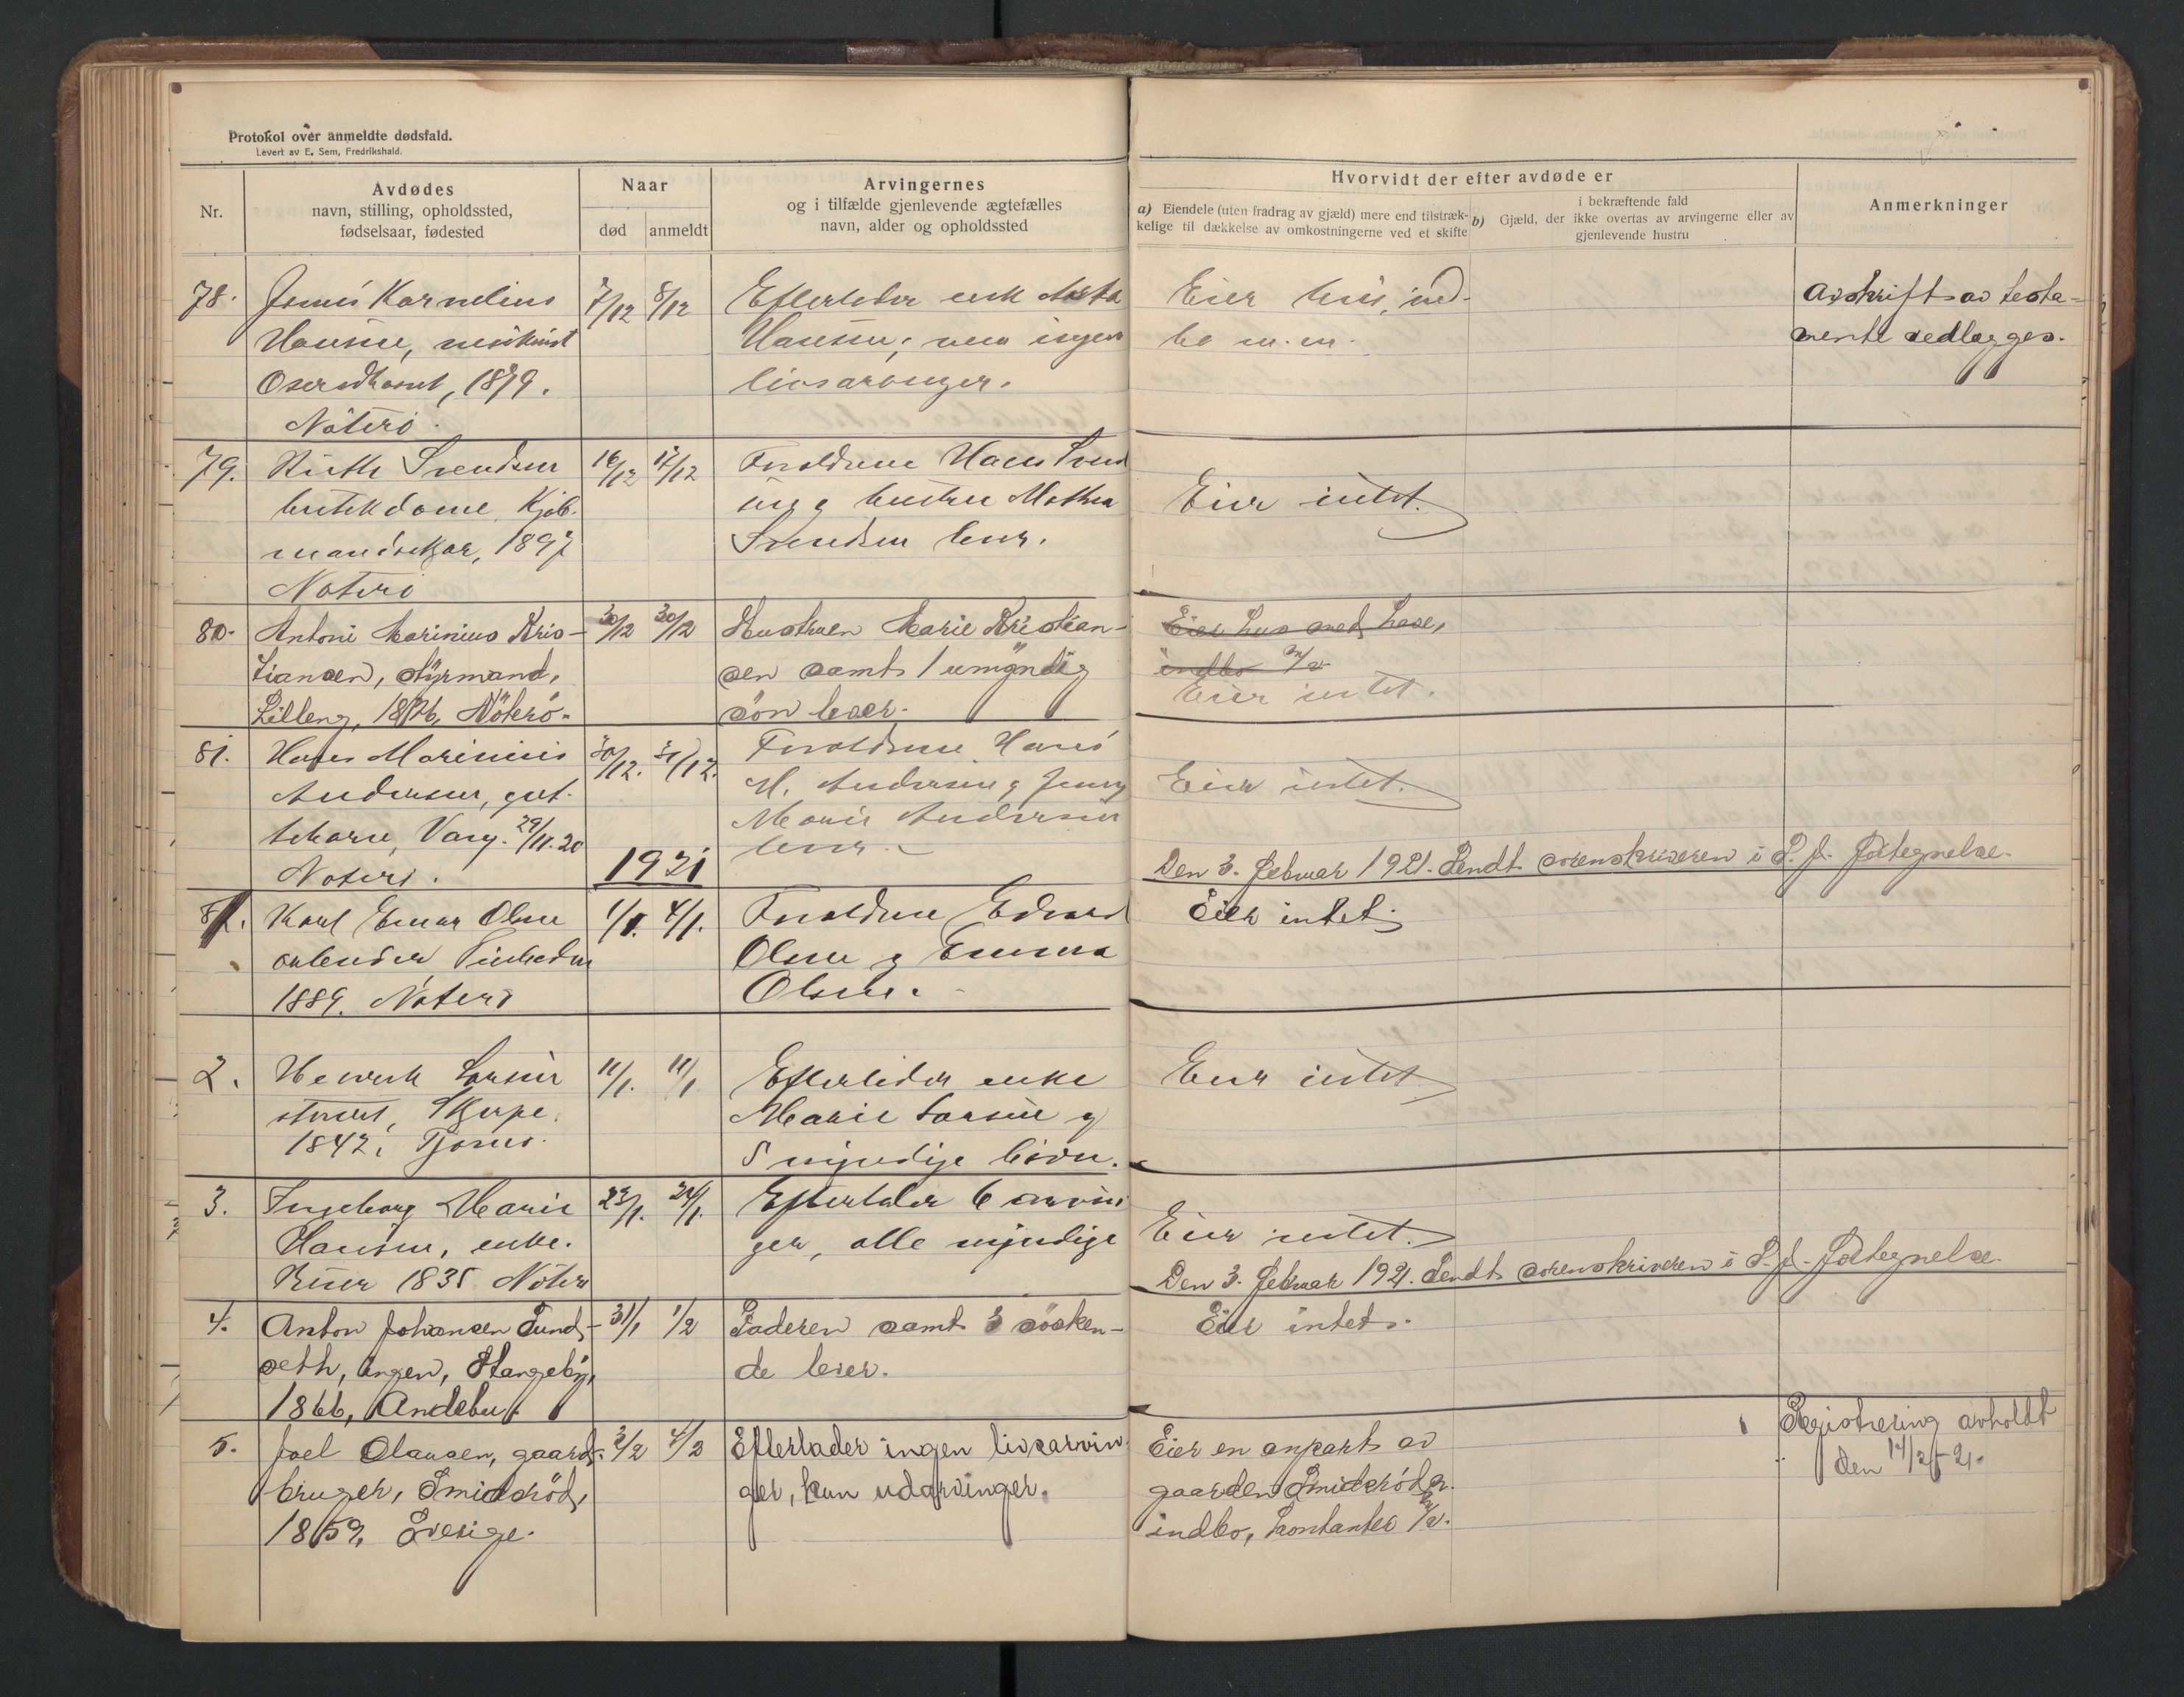 Protokol over anmeldte dødsfald.
Levert av E. Sem, Fredrikshald.
Nr.
Avdødes
navn, stilling, opholdssted,
fødselsaar, fødested
Naar
død
anmeldt
Arvingernes
og i tilfælde gjenlevende ægtefælles
navn, alder og opholdssted
Hvorvidt der efter avdøde er
a) Eiendele (uten fradrag av gjæld) mere end tilstræk-
kelige til dækkelse av omkostningerne ved et skifte
i bekræftende fald
b) Gjæld, der ikke overtas av arvingerne eller av
gjenlevende hustru
Anmerkninger
78. Kornelius 7/12 8/12 Efterlader enk
Hansen, maskinist Hansen; men ingen
1879. livsarvinger.
Nøterø.
Eier hus, ind-
bo m.m.
Avskrift av testa-
mente vedlegges.
79. Ruth Svendsen 16/12 17/12 Forældrene Hans Svend
butikdame, Kjøb- sen g hustru Mathea
mandskjær, 1897 Svendsen lever.
Nøterø
Eier intet.
80. Antoni Marinius Kris- 30/12 30/12 Hustruen Marie Kristian-
tiansen, styrmand, sen samt 1 umyndig
Lilleng, 1876, Nøterø. søn lever.
Eier hus med have,
indbo
Eier intet.
81. Hans Marinius 30/12. 31/12. Forældrene Hans
Andersen, gut- M. Andersen g Jenny
tebarn, 29/11.20 Marie Andersen
Nøterø. lever.
Eier intet.
1921
Den 3. februar 1921. Sendt sorenskriveren i S. J. Fortegnelse.
1. Karl Einar Olsen 1/1. 4/1. Forældrene Edvard
arbeider Olsen g Emma
1889. Nøterø Olsen.
Eier intet.
2. Henrik Larsen 11/1. 11/1. Efterlader enke
1842, Tjømø. Marie Larsen g
5 myndige børn.
Eier intet
3. Ingeborg Marie 23/1. 24/1. Efterlader 6 arvin
Hansen, enke. ger, alle myndige
1835. Nøterø
Eier intet.
Den 3. februar 1921. Sendt sorenskriveren i S. J. Fortegnelse.
4. Anton Johansen Sund- 31/1 1/2 Faderen samt 3 søsken-
seth, ingen, Stangeby, de lever.
1866, Andebu.
Eier intet.
5. Joel Olausen, gaard- 3/2 4/2 Efterlader ingen livsarvin-
bruger, Smidsrød, ger, kun udarvinger.
1859, Sverige.
Eier en anpart av
gaarden Smidsrød
indbo, kontanter
Registrering avholdt
den 14/2-21.